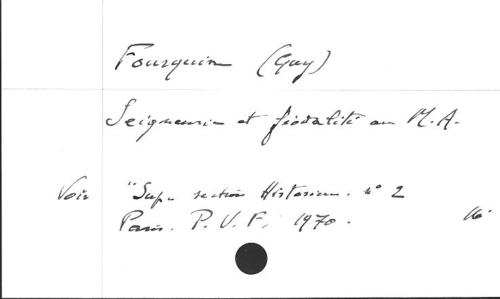 Fourquin (Guy)
Seigneurie et féodalité au M.A.
Voir "Sup. section Historien. n° 2
Paris. P.U.F, 1970.